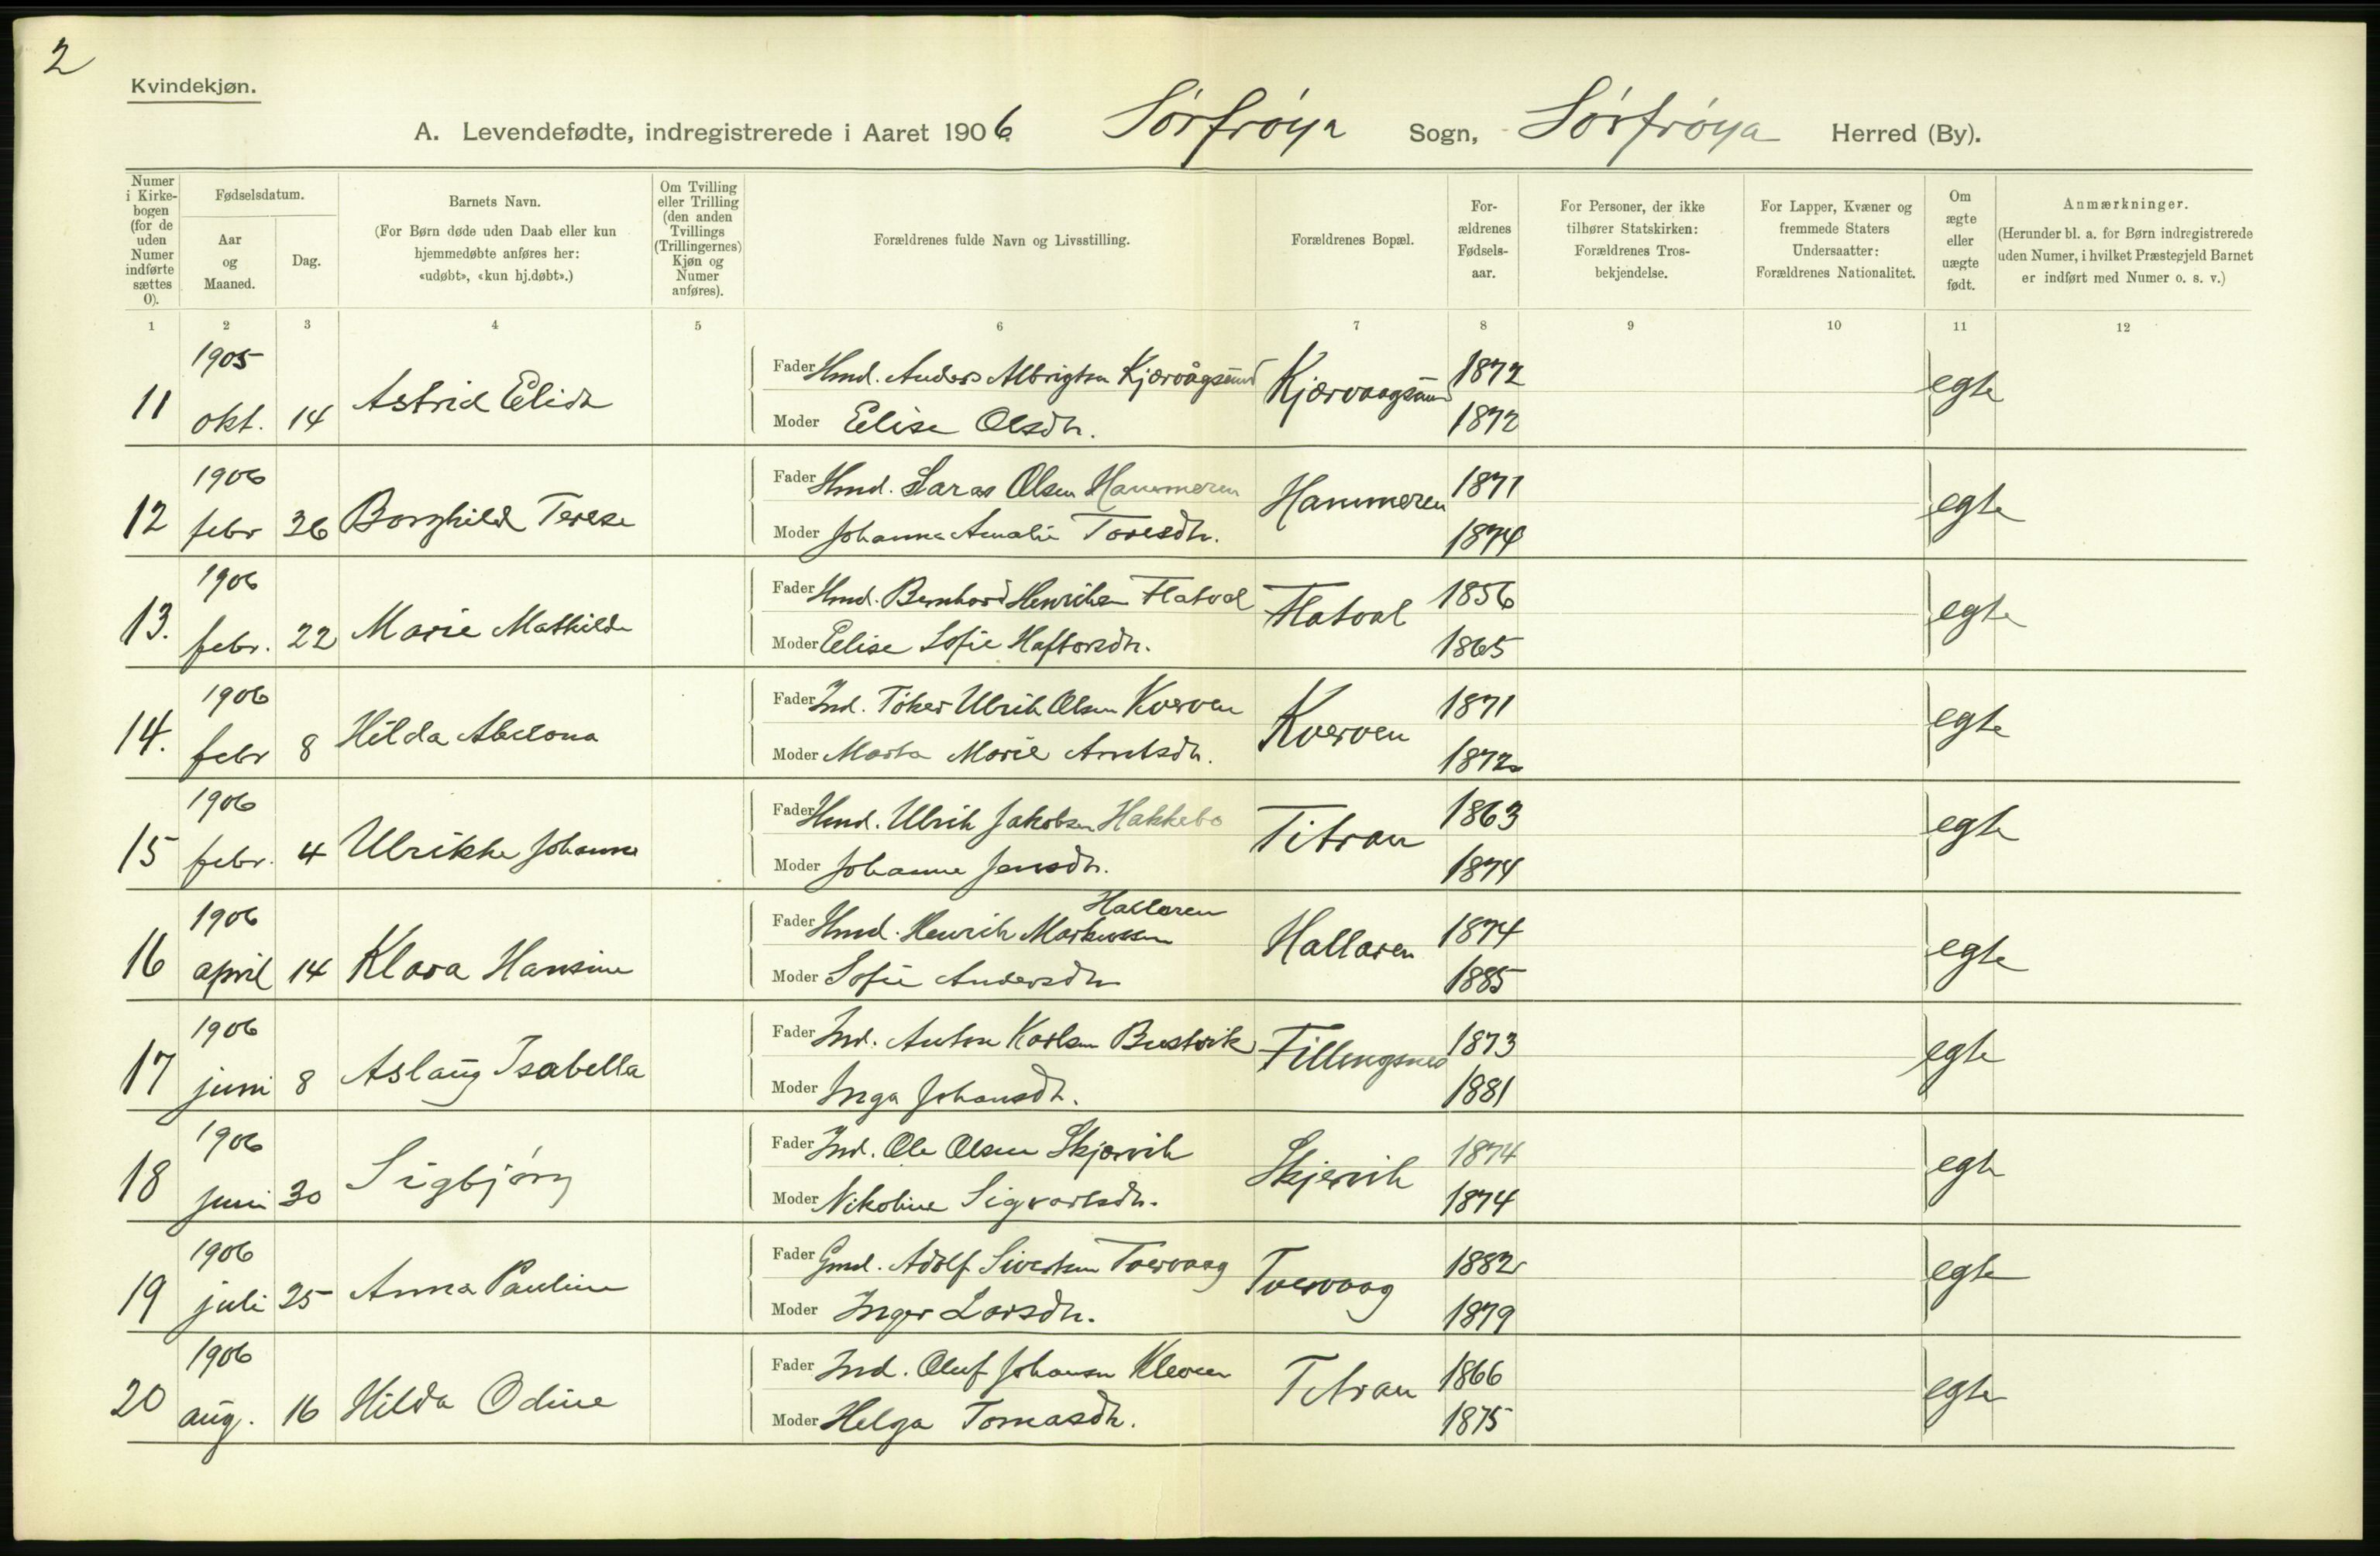 2
Kvindekjøn.
A. Levendefødte, indregistrerede i Aaret 1906. Sörfröya Sogn, Sörfröya Herred (By).
Numer i Kirkebogen (for de uden Numer indførte sættes 0).
Fødselsdatum.
Aar og Maaned.
Dag.
Barnets Navn.
(For Børn døde uden Daab eller kun hjemmedøbte anføres her: «udøbt», «kun hj.døbt».)
Om Tvilling eller Trilling (den anden Tvillings (Trillingernes) Kjøn og Numer anføres).
Forældrenes fulde Navn og Livsstilling.
Forældrenes Bopæl.
Forældrenes Fødselsaar.
For Personer, der ikke tilhører Statskirken: Forældrenes Trosbekjendelse.
For Lapper, Kvæner og fremmede Staters Undersaatter: Forældrenes Nationalitet.
Om ægte eller uægte født.
Anmærkninger.
(Herunder bl. a. for Børn indregistrerede uden Numer, i hvilket Præstegjeld Barnet er indført med Numer o. s. v.)
1 2 3 4 5 6 7 8 9 10 11 12
1905 Fader Gmd. Anders Albrigtsen Kjærvågsund Kjærvaagsund 1872 egte
11 okt. 14 Astrid Elida Moder Elise Olsdtr. 1872
1906 Fader Gmd. Olsen Hammeren Hammeren 1871 egte
12 febr 26 Borghild Terese Moder Johanna Amalie Toresdtr. 1874
1906 Fader Gmd. Bernhard Henriksen Flatval Flatval 1856 egte
13. febr. 22 Marie Mathilde Moder Elise Sofie Haftorsdtr. 1865
1906 Fader Ind. Ulrik Olsen Kverven Kverven 1871 egte
14. febr 8 Hilda Abelona Moder Marta Marie Arntsdtr. 1872
1906 Fader Gmd. Ulrik Jakobsen Hakkebo Titran 1863 egte
15 febr. 4 Ulrikke Johanna Moder Johanne Jensdtr. 1874
1906 Fader Gmd. Henrik Markussen Hallaren Hallaren 1874 egte
16 april 14 Klara Hansine Moder Sofie Andersdtr 1885
1906 Fader Ind. Anton Karlsen Bustvik Fillingsnes 1873 egte
17 juni 8 Aslaug Isabella Moder Inga Johansdtr. 1881
1906 Fader Ind. Ole Olsen Skjærvik Skjervik 1874 egte
18 juni 30 Sigbjörg Moder Nikoline Sigvartsdtr. 1874
1906 Fader Gmd. Adolf Sivertsen Tvervaag Tvervaag 1882 egte
19 juli 25 Anna Pauline Moder Inger Larsdtr. 1879
1906 Fader Ind. Oluf Johansen Kleven Titran 1866 egte
20 aug. 16 Hilda Odine Moder Helga Tomasdtr. 1875